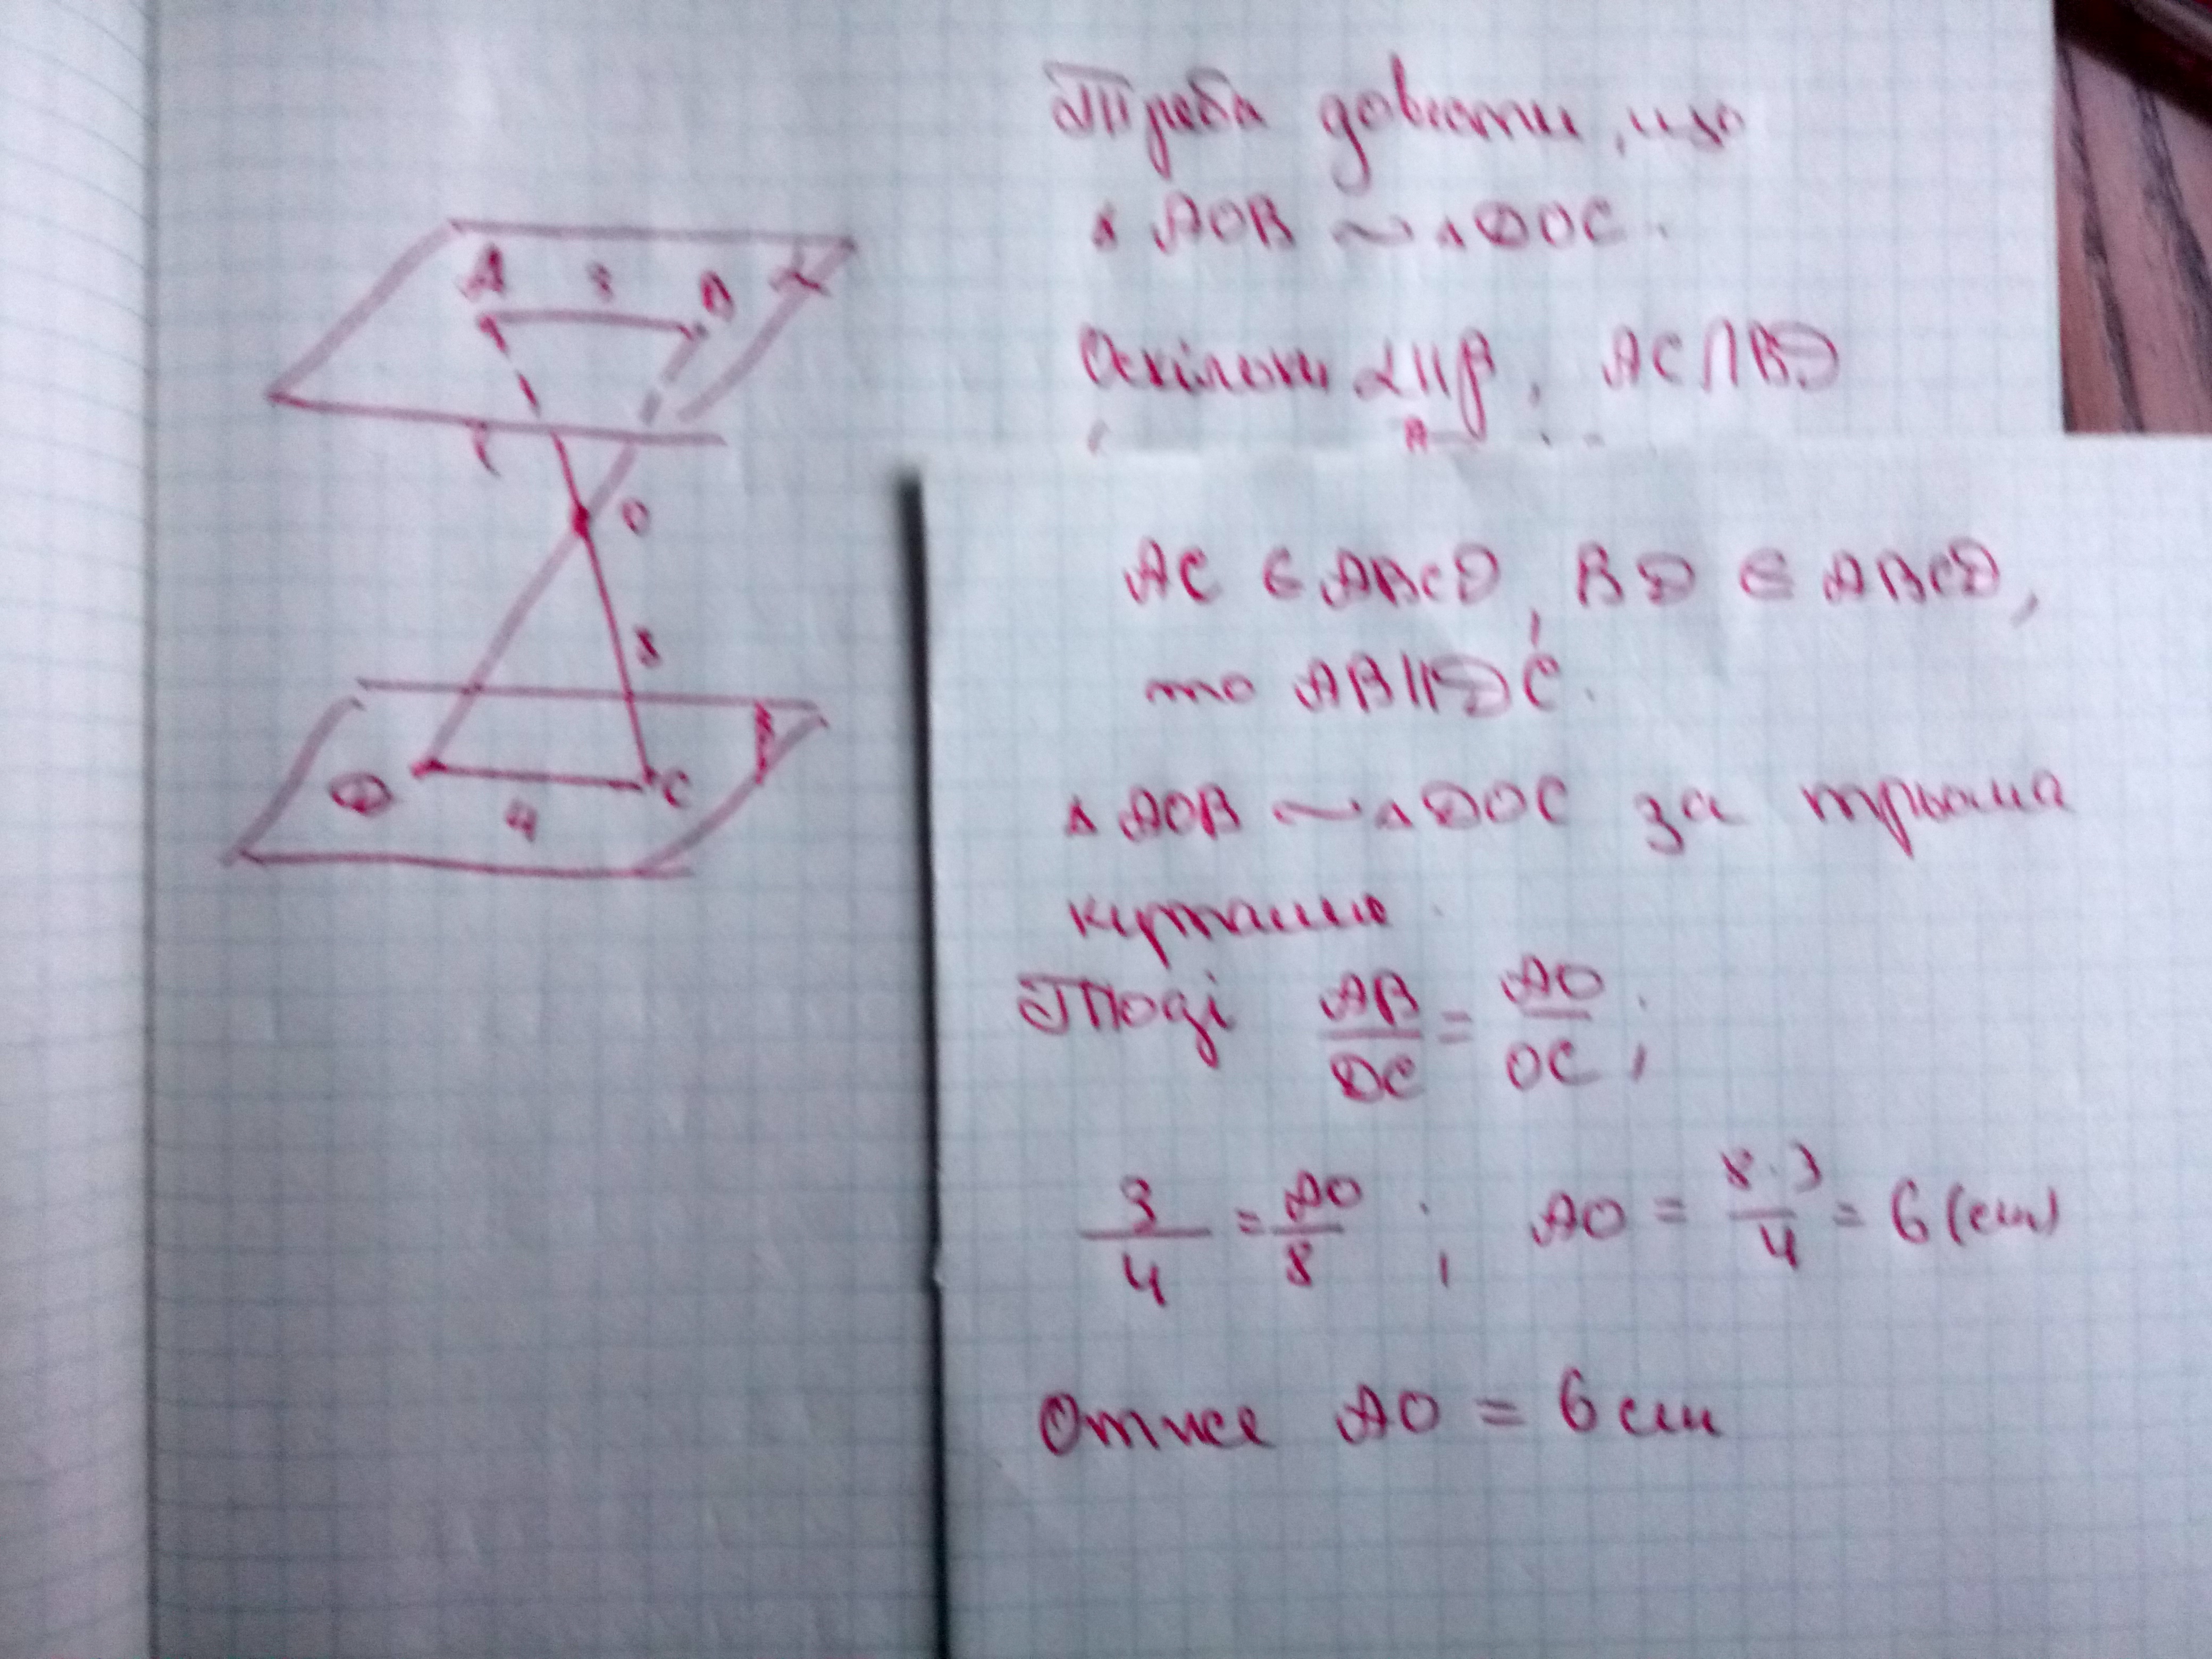 Треба довести, що
△ AOB ~ △DOC.
Оскільки α||β, AC∩BD
AC ∈ ABCD, BD ∈ ABCD,
то AB||DC.
△ AOB ~ △DOC за трьома
кутами.
Тоді AB/DC = AO/OC;
3/4 = AO/8; AO = 8·3/4 = 6 (см)
Отже AO = 6 см
A 3 B α
O
8
D C β
4